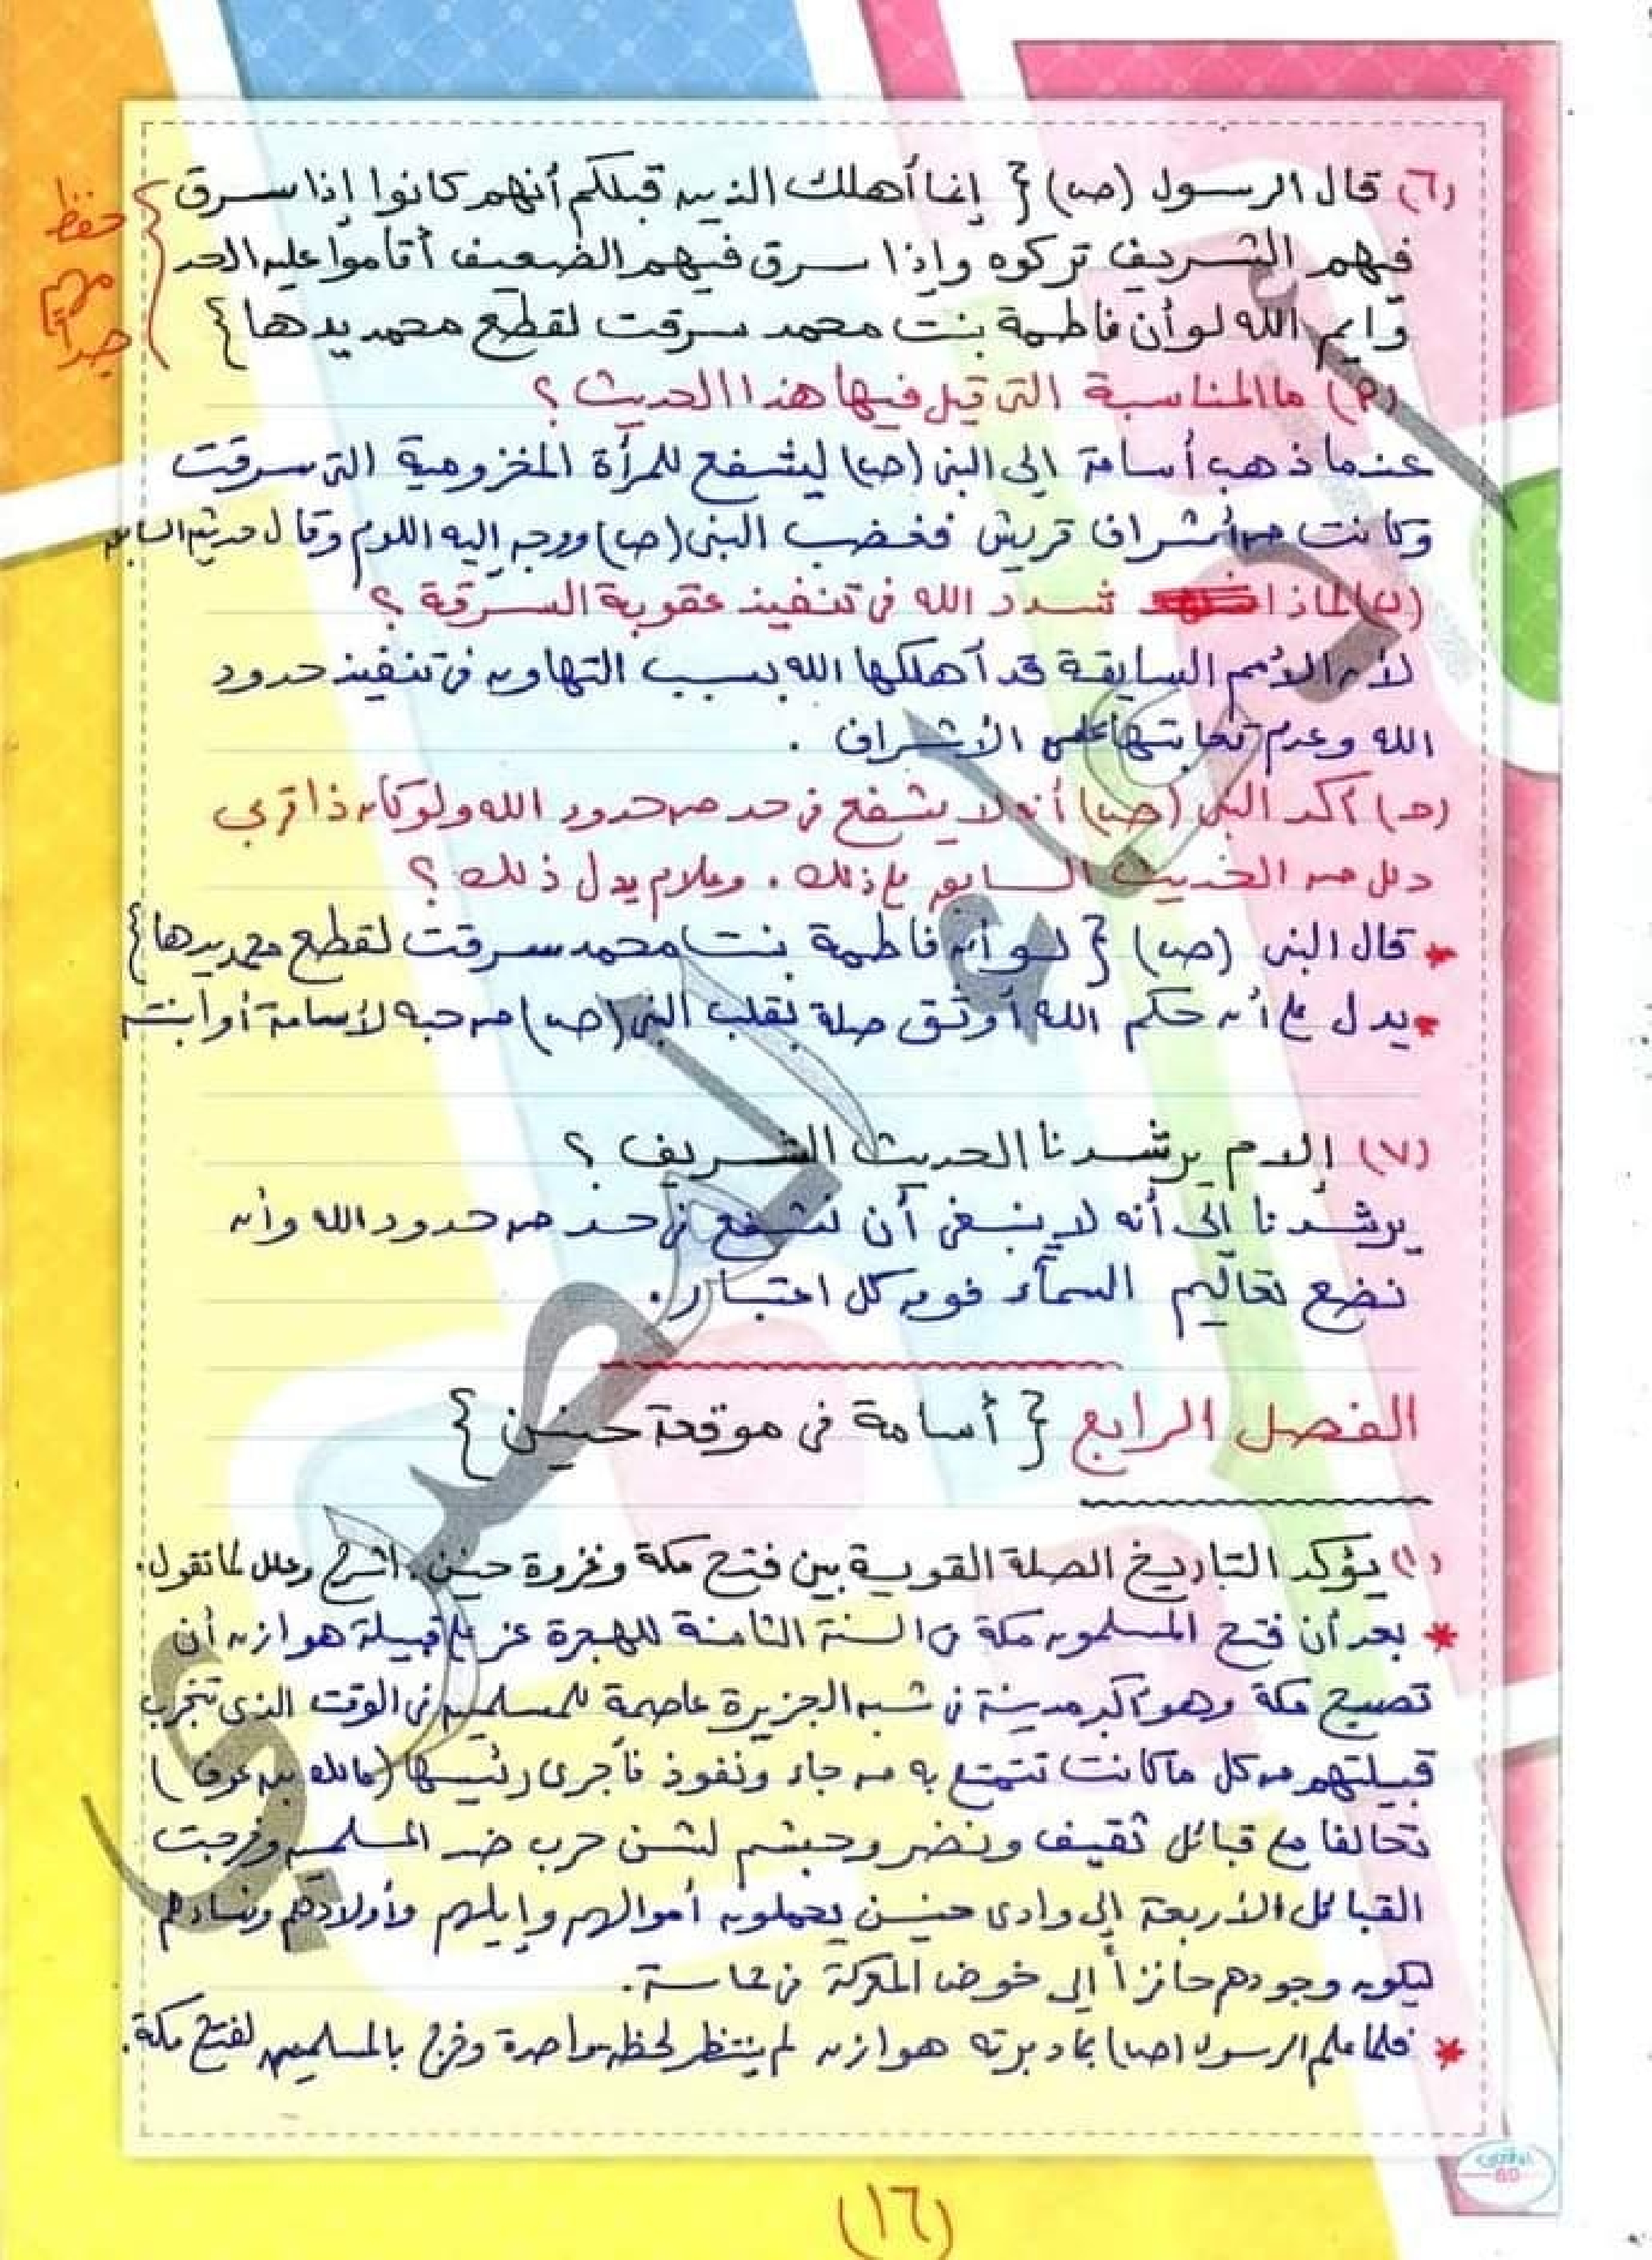 (٦) قال الرسول (صـ) { إنما أهلك الذين قبلكم أنهم كانوا إذا سرق
فيهم الشريف تركوه وإذا سرق فيهم الضعيف أقاموا عليه الحد
وايم الله لو أن فاطمة بنت محمد سرقت لقطع محمد يدها }
حفظ
مهم
جداً
(أ) ما المناسبة التى قيل فيها هذا الحديث ؟
عندما ذهب أسامة إلى النبى (صـ) ليشفع للمرأة المخزومية التى سرقت
وكانت من أشراف قريش فغضب النبى (صـ) ووجه إليه اللوم وقال حديثه السابق
(ب) لماذا شدد الله فى تنفيذ عقوبة السرقة ؟
لأن الأمم السابقة قد أهلكها الله بسبب التهاون فى تنفيذ حدود
الله وعدم على الأشراف .
(حـ) أكد النبى (صـ) أنه لا يشفع فى حد من حدود الله ولو كان ذا قربى
دلل من الحديث السابق على ذلك . وعلام يدل ذلك ؟
* قال النبى (صـ) { لو أن فاطمة بنت محمد سرقت لقطع محمد يدها }
* يدل على أن حكم الله أوثق صلة بقلب النبى (صـ) من حبه لأسامة أو ابنته
(٧) إلام يرشدنا الحديث الشريف ؟
يرشدنا إلى أنه لا ينبغى أن نشفع فى حد من حدود الله وأن
نضع تعاليم السماء فوق كل اعتبار .
الفصل الرابع { أسامة فى موقعة حنين }
(١) يؤكد التاريخ الصلة القوية بين فتح مكة وغزوة حنين . اشرح وعلل لما تقول .
* بعد أن فتح المسلمون مكة فى السنة الثامنة للهجرة عز على قبيلة هوازن أن
تصبح مكة وهو أكبر مدينة فى شبه الجزيرة عاصمة للمسلمين فى الوقت الذى تتجرد
قبيلتهم من كل ما كانت تتمتع به من جاه ونفوذ فأجرى رئيسها (مالك بن عوف)
تحالفا مع قبائل ثقيف ونضر وجشم لشن حرب ضد المسلمين وخرجت
القبائل الأربعة إلى وادى حنين يحملون أموالهم وإبلهم وأولادهم ونساءهم
ليكون وجودهم حافزاً إلى خوض المعركة فى حماسة .
* فلما علم الرسول (صـ) بما دبرته هوازن لم ينتظر لحظة واحدة وخرج بالمسلمين لفتح مكة .
(١٦)
60